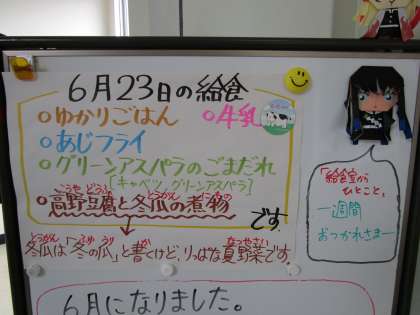 6月23日の給食
○ゆかりごはん ○牛乳
○あじフライ
○グリーンアスパラのごまだれ
[キャベツ,グリーンアスパラ]
こうや どうふ とうがん にもの
○高野豆腐と冬瓜の煮物
です。
とうがん ふゆ うり か なつやさい
冬瓜は「冬の瓜」と書くけど、りっぱな夏野菜です。
「給食室から
ひとこと」
一週間
おつかれさまー
6月になりました。